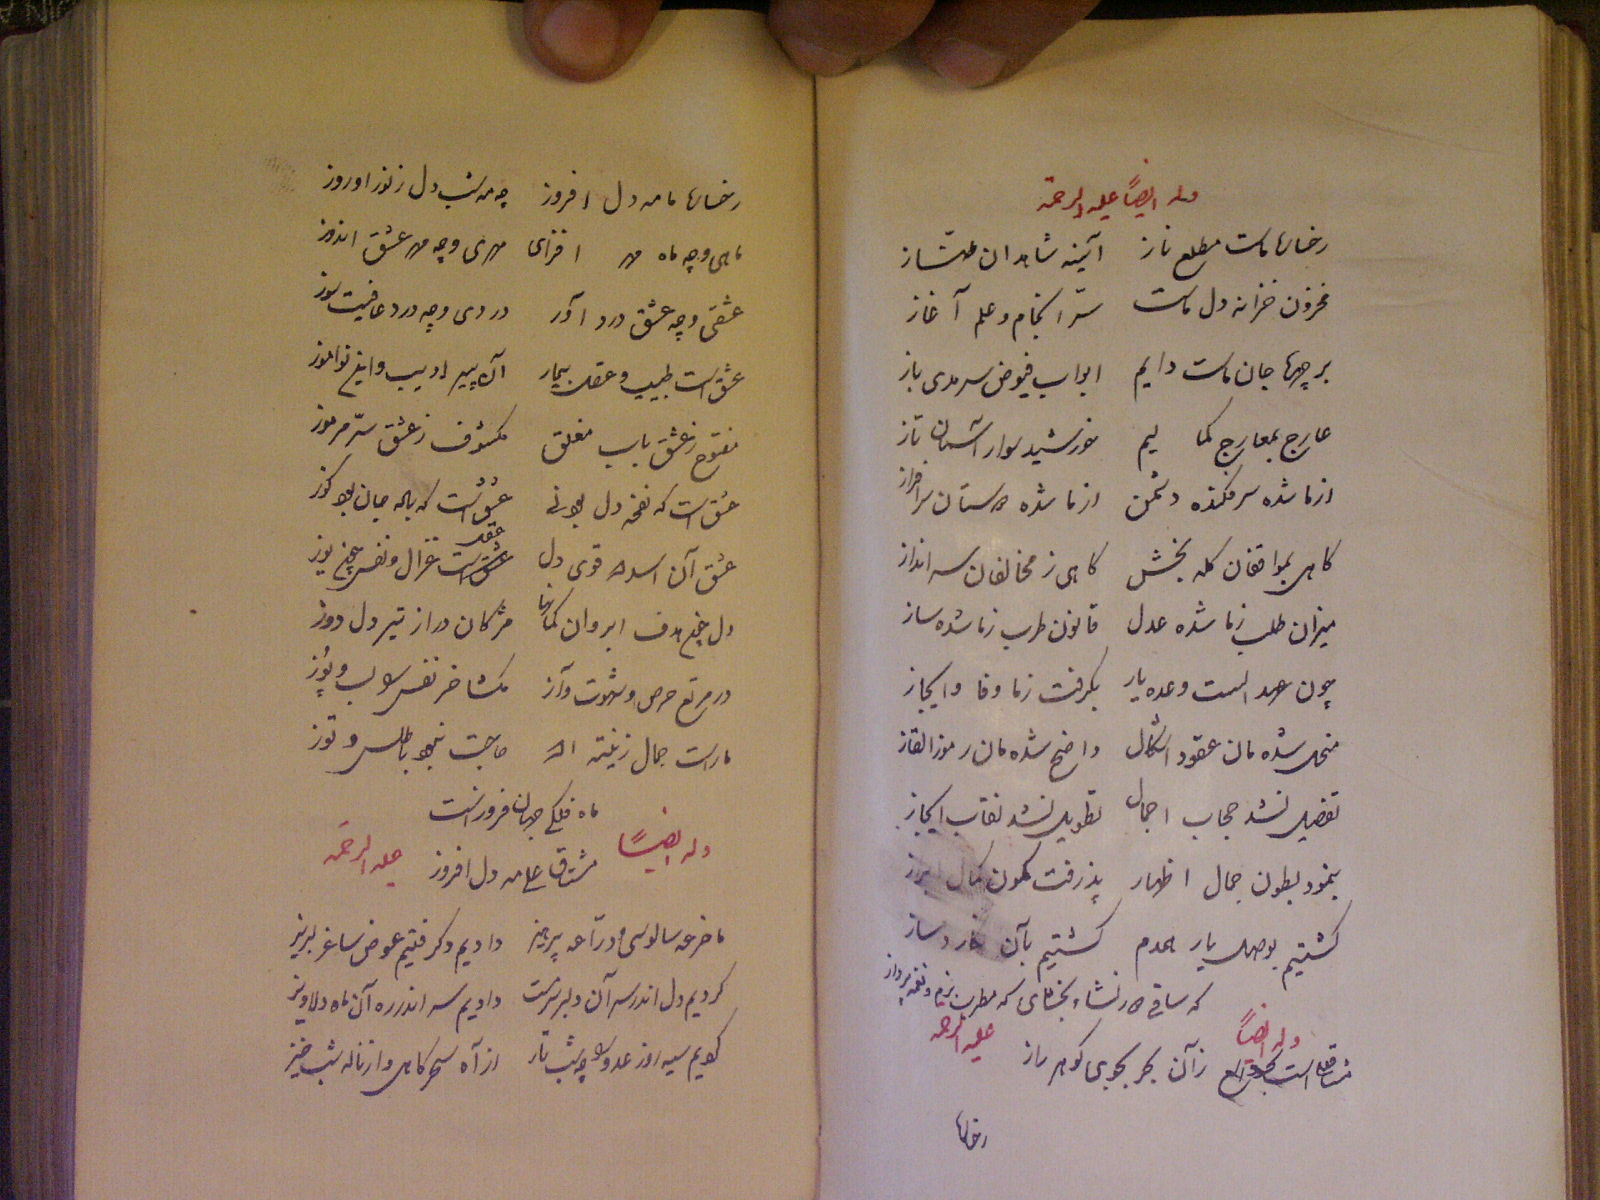 وله ایضاً علیه الرحمة
رخسار ماست مطلع ناز آئینه شاهدان طنّاز
مخزون خزانه دل ماست سرّ انجام و علم آغاز
بر چهره جان ماست دایم ابواب فیوض سرمدی باز
عارج بمعارج کما لیم خورشید سوار آسمان تاز
از ما شده سرفکنده دشمن از ما شده دوستان سرافراز
کاهی بموافقان کله بخش کاهی ز مخالفان سر انداز
میزان طلب ز ما شده عدل قانون طرب ز ما شده ساز
چون عهد الست وعده یار بگرفت ز ما وفا و انجاز
منحل شده مان عقود اشکال واضح شده مان رموز الغاز
تفصیل نشد حجاب اجمال تطویل نشد نقاب ایجاز
بنمود بطون جمال اظهار پذرفت کمون کمال ابراز
گشتیم بوصل یار همدم گشتیم بآن نکار دمساز
که ساقی در نشاء بخشای که مطرب بزم و نغمه پرداز
وله ایضاً علیه الرحمه
مشتاق است بحر مواج زآن بحر بجوی کوهر راز
رخسار
رخسار ما مه دل افروز چه مه شب دل ز نور او روز
ماهی و چه ماه مهر افزای مهری و چه مهر عشق اندوز
عشقی و چه عشق درد آور دردی و چه درد عافیت سوز
عشق است طبیب و عقل بیمار آن پیر ادیب و این نوآموز
مفتوح ز عشق باب مغلق مکشوف ز عشق سرّ مرموز
عشق است که نفخه دل بود نی عشق است که ناله جان بود کوز
عشق آن اسد قوی دل عقل است غزال و نفس چون یوز
دل چون هدف ابروان کمانها مژکان دراز تیر دل دوز
در مرتع حرص و شهوت و آز مکشا خر نفس را لب و پوز
ماراست جمال زینت حاجت نبود باطلس و توز
ماه فلکی جهان فروز است
وله ایضاً علیه الرحمة
مشتاق علی مه دل افروز
ما خرقه سالوسی و درّاعه پرهیز دادیم و گرفتیم عوض ساغر لبریز
کردیم دل اندر سر آن دلبر سرمست دادیم سر اندر ره آن ماه دلاویز
کویم سیه روز عدو را چو شب تار از آه سحر کاهی و از ناله شب خیز